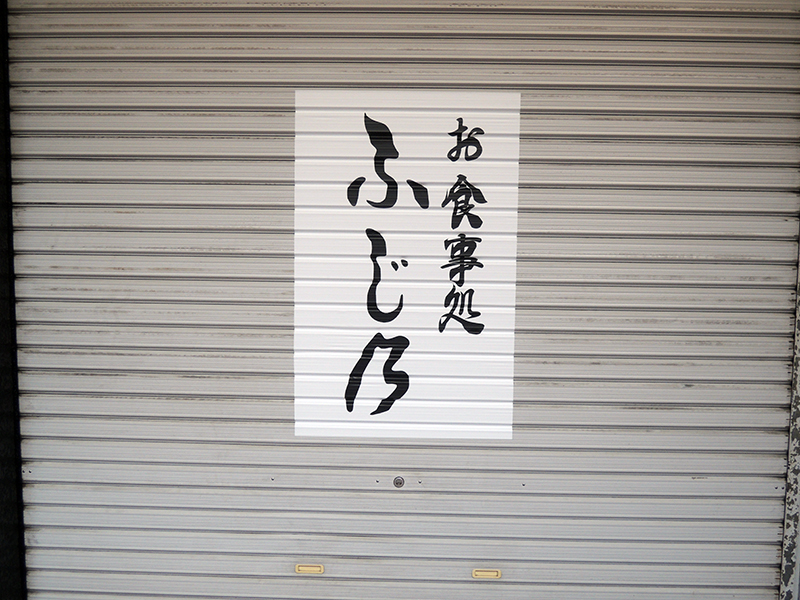 お食事処
ふじ乃